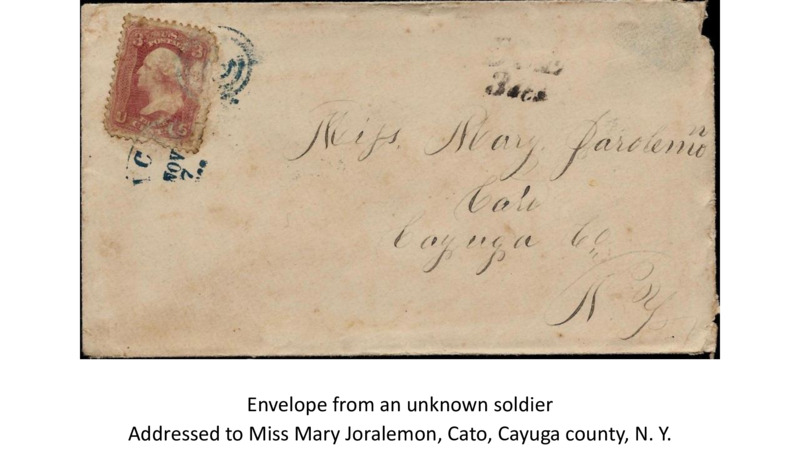 3 U.S. 3
POSTAGE
NOV
7
Due
3 cts
Miss. Mary Jarolemon
Cato
Cayuga Co.
N. Y.
Envelope from an unknown soldier
Addressed to Miss Mary Joralemon, Cato, Cayuga county, N. Y.